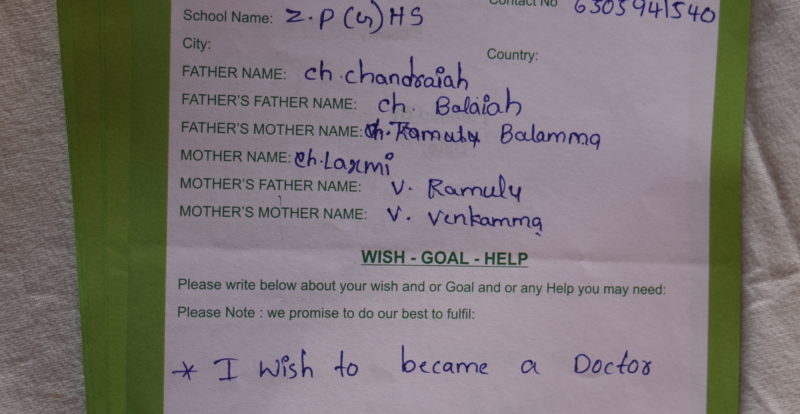 Contact No 6305941540
School Name: Z.P(G)HS
City:
Country:
FATHER NAME: ch.chandraiah
FATHER'S FATHER NAME: ch. Balaiah
FATHER'S MOTHER NAME: ch. Ramuly Balamma
MOTHER NAME: ch.Laxmi
MOTHER'S FATHER NAME: V. Ramuly
MOTHER'S MOTHER NAME: V. Venkamma
WISH - GOAL - HELP
Please write below about your wish and or Goal and or any Help you may need:
Please Note : we promise to do our best to fulfil:
* I wish to became a Doctor